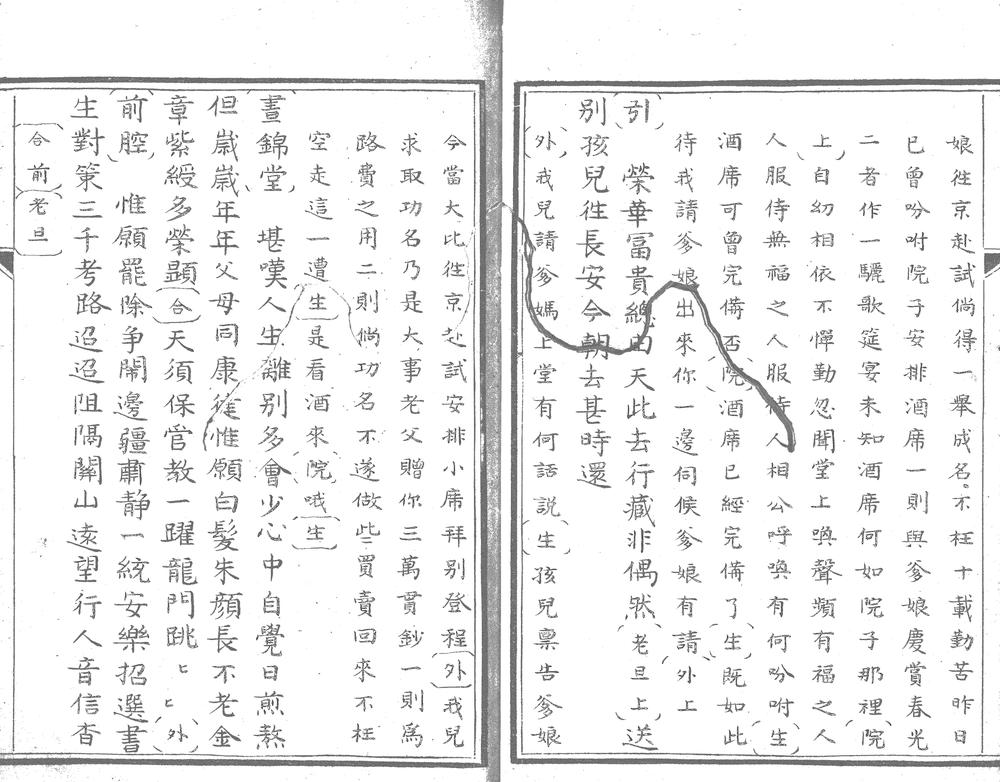 娘徃京赴試倘得一舉成名不枉十載勤苦昨日
已曾吩咐院子安排酒席一則與爹娘慶賞春光
二者作一驪歌筵宴未知酒席何如院子那裡院
上自幼相依不憚勤忽聞堂上喚聲頻有福之人
人服侍無福之人服侍人相公呼喚有何吩咐生
酒席可曾完備否院酒席已經完備了生既如此
待我請爹娘出來你一邊伺候爹娘有請外上
引 榮華富貴總由天此去行藏非偶然老旦上送
別孩兒徃長安今朝去甚時還
外我兒請爹媽上堂有何話說生孩兒禀告爹娘
今當大比徃京赴試安排小席拜别登程外我兒
求取功名乃是大事老父贈你三萬貫鈔一則爲
路費之用二則倘功名不遂做些買賣回來不枉
空走這一遭生是看酒來院哦生
晝錦堂 堪嘆人生離别多會少心中自覺日煎熬
但嵗嵗年年父母同康健惟願白髮朱顏長不老金
章紫綬多榮顯合天須保官教一躍龍門跳匕匕外
前腔 惟願罷除争鬧邊疆肅静一統安樂招選書
生對策三千考路迢迢阻隔關山遠望行人音信杳
合前老旦